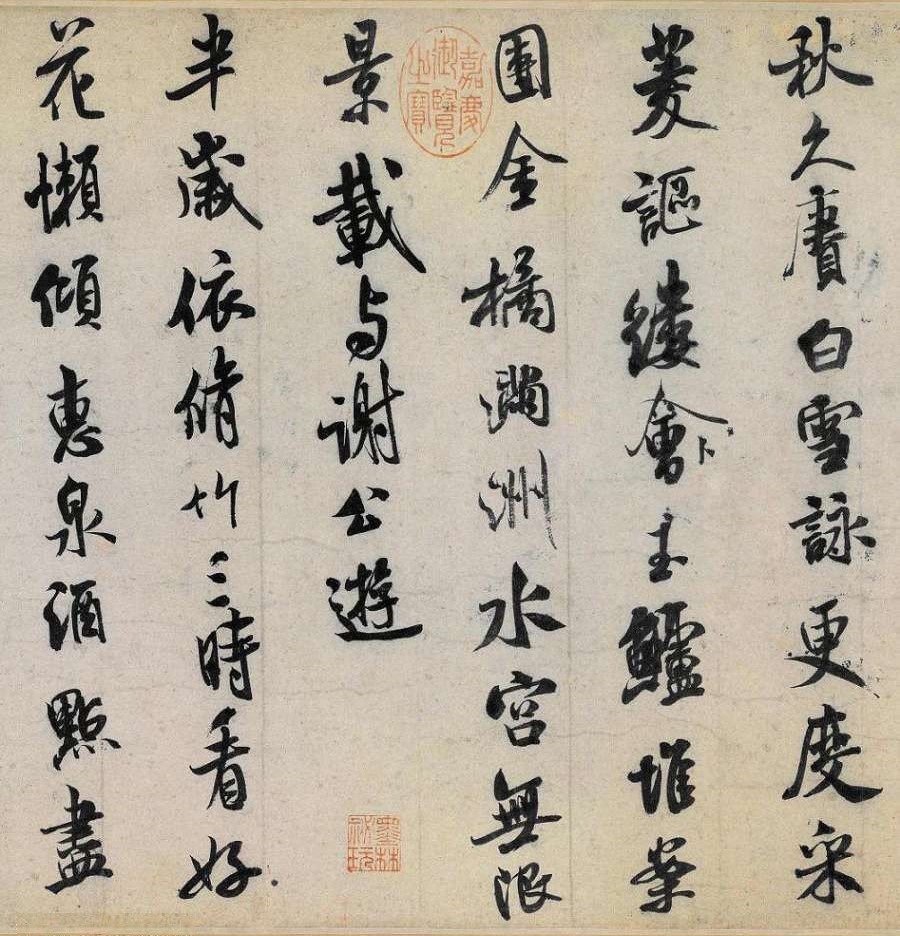 秋久賡白雪詠更度采
菱謳縷會玉鱸堆案
團金橘滿洲水宮無限
景載与謝公遊
半歲依脩竹三時看好
花懶傾惠泉酒點盡
嘉慶御覽之寶
墨林秘玩